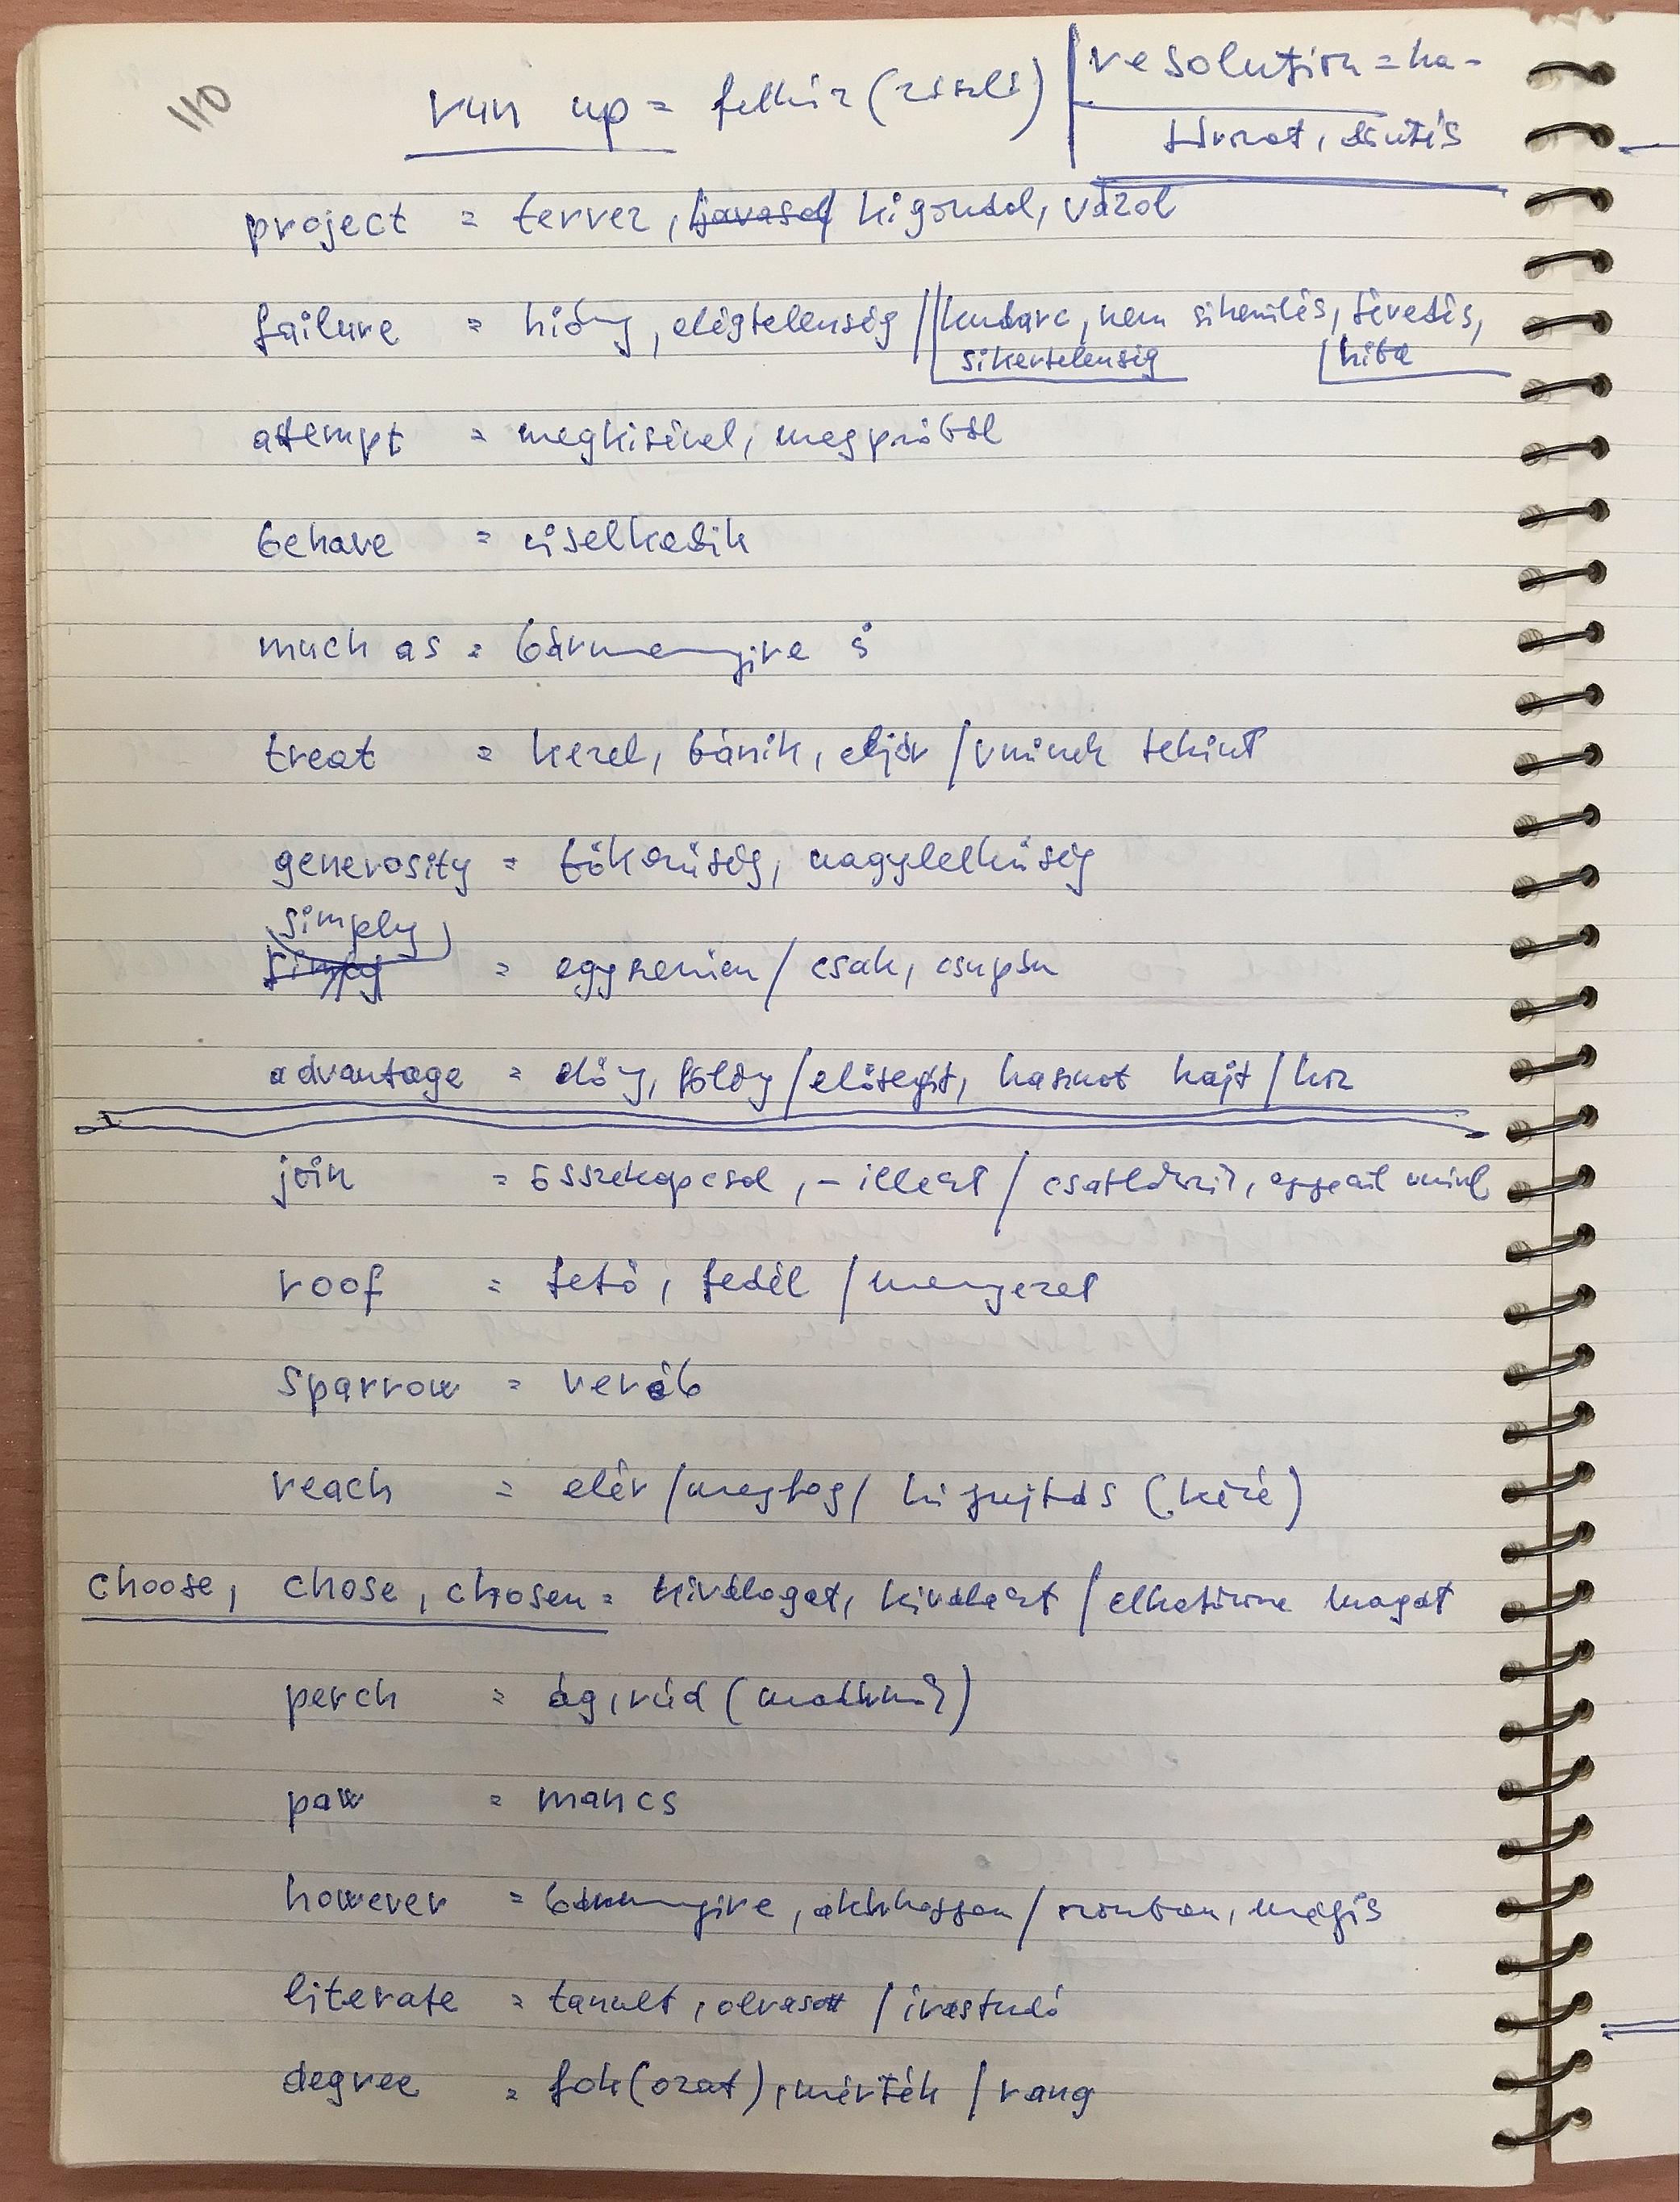 110
run up = felhúz (zászló)
resolution = ha-
tározat, döntés
project = tervez, javasol kigondol, vázol
failure = hiány, elégtelenség // kudarc, nem sikerülés, tévedés,
sikertelenség hiba
attempt = megkisérel, megpróbál
behave = viselkedik
much as = bármennyire is
treat = kezel, bánik, eljár / vminek tekint
generosity = nagylelkűség
simply
simply = egyszerűen / csak, csupán
advantage = előny, fölény / elősegít, hasznot hajt / hoz
join = összekapcsol, - illeszt / csatlakozik, egyesül
roof = tető, fedél / mennyezet
sparrow = veréb
reach = elér / megfog / kinyujtás (kézé)
choose, chose, chosen = kiválogat, kiválaszt / elhatározza magát
perch = ág, rúd (madárnak)
paw = mancs
however = bármennyire, akárhogyan / azonban, mégis
literate = tanult, olvasott / írástudó
degree = fok(ozat), mérték / rang